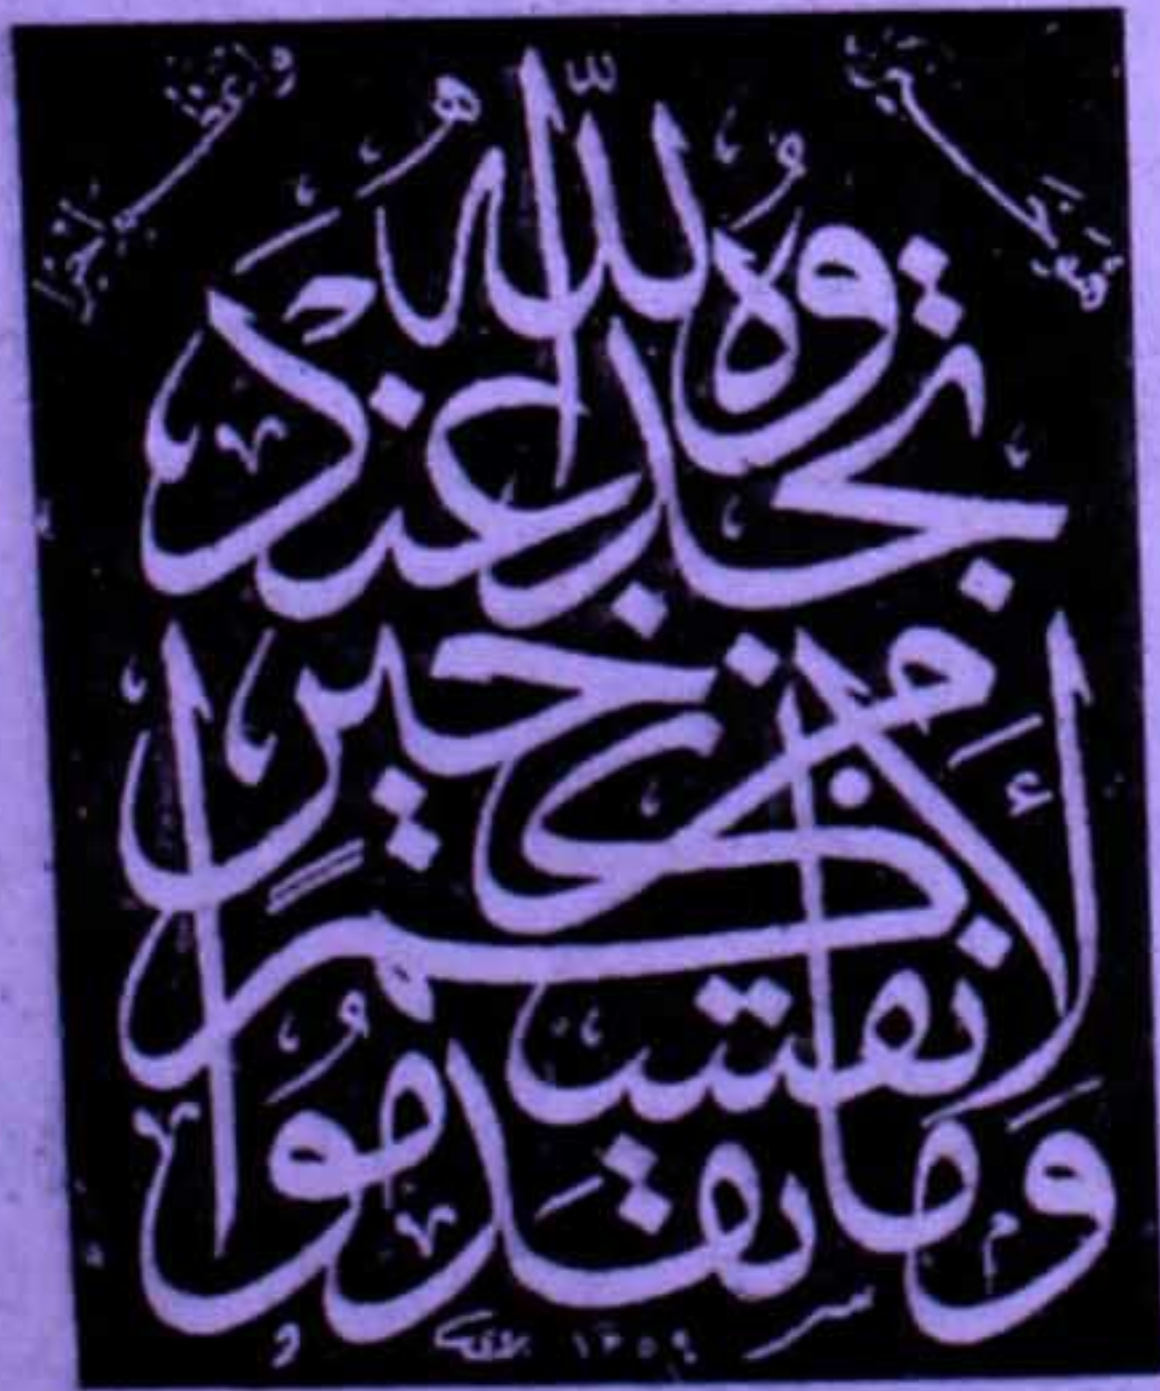 وَمَا تُقَدِّمُوا
لِأَنفُسِكُم مِّنْ خَيْرٍ
تَجِدُوهُ عِندَ اللَّهِ هُوَ
وأعظم أجرا